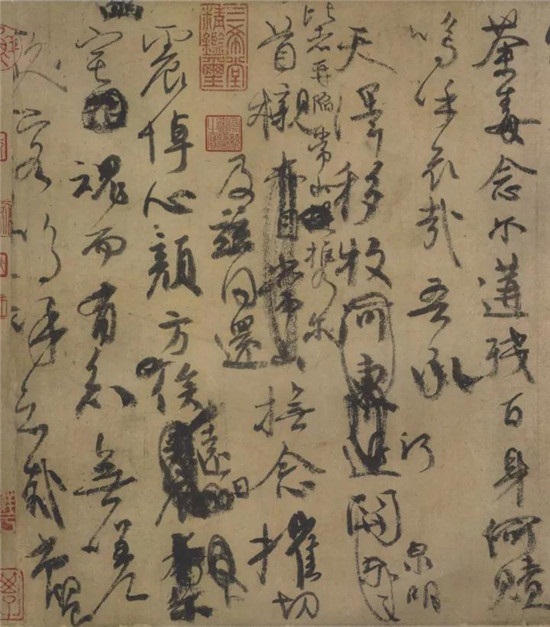 荼毒念尔遘殘百身何贖
嗚呼哀哉吾承
天澤移牧河東近
泉明
比者再陷常山携尔
首櫬
及兹同還
撫念摧切
震悼心顔方俟遠日
宅魂而有知無嗟
久客嗚呼哀哉尚饗
三希堂精鑑璽